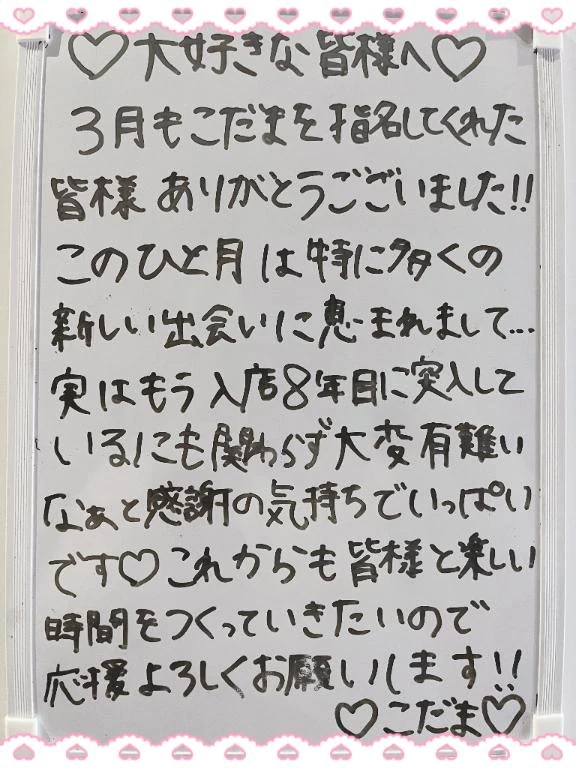 ♡大好きな皆様へ♡
3月もこだまを指名してくれた
皆様ありがとうございました!!
このひと月は特に多くの
新しい出会いに恵まれまして...
実はもう入店8年目に突入して
いるにも関わらず大変有難い
なぁと感謝の気持ちでいっぱい
です♡これからも皆様と楽しい
時間をつくっていきたいので
応援よろしくお願いします!!
♡こだま♡